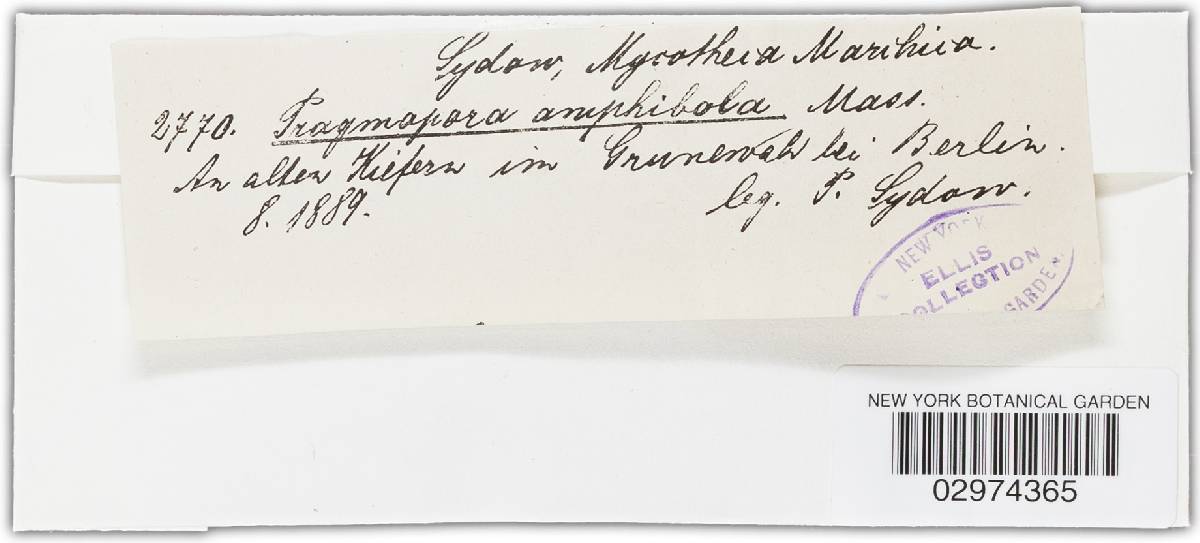 Sydow, Mycotheca Marchica.
2770. Pragmopora amphibola Mass.
An alten Kiefern im Grunewald bei Berlin.
8. 1889. leg. P. Sydow.
NEW YORK
ELLIS
COLLECTION
GARDEN
NEW YORK BOTANICAL GARDEN
02974365